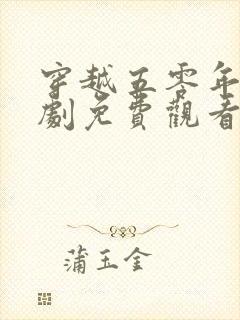 穿越五零年
劇免費觀看
蒲玉金